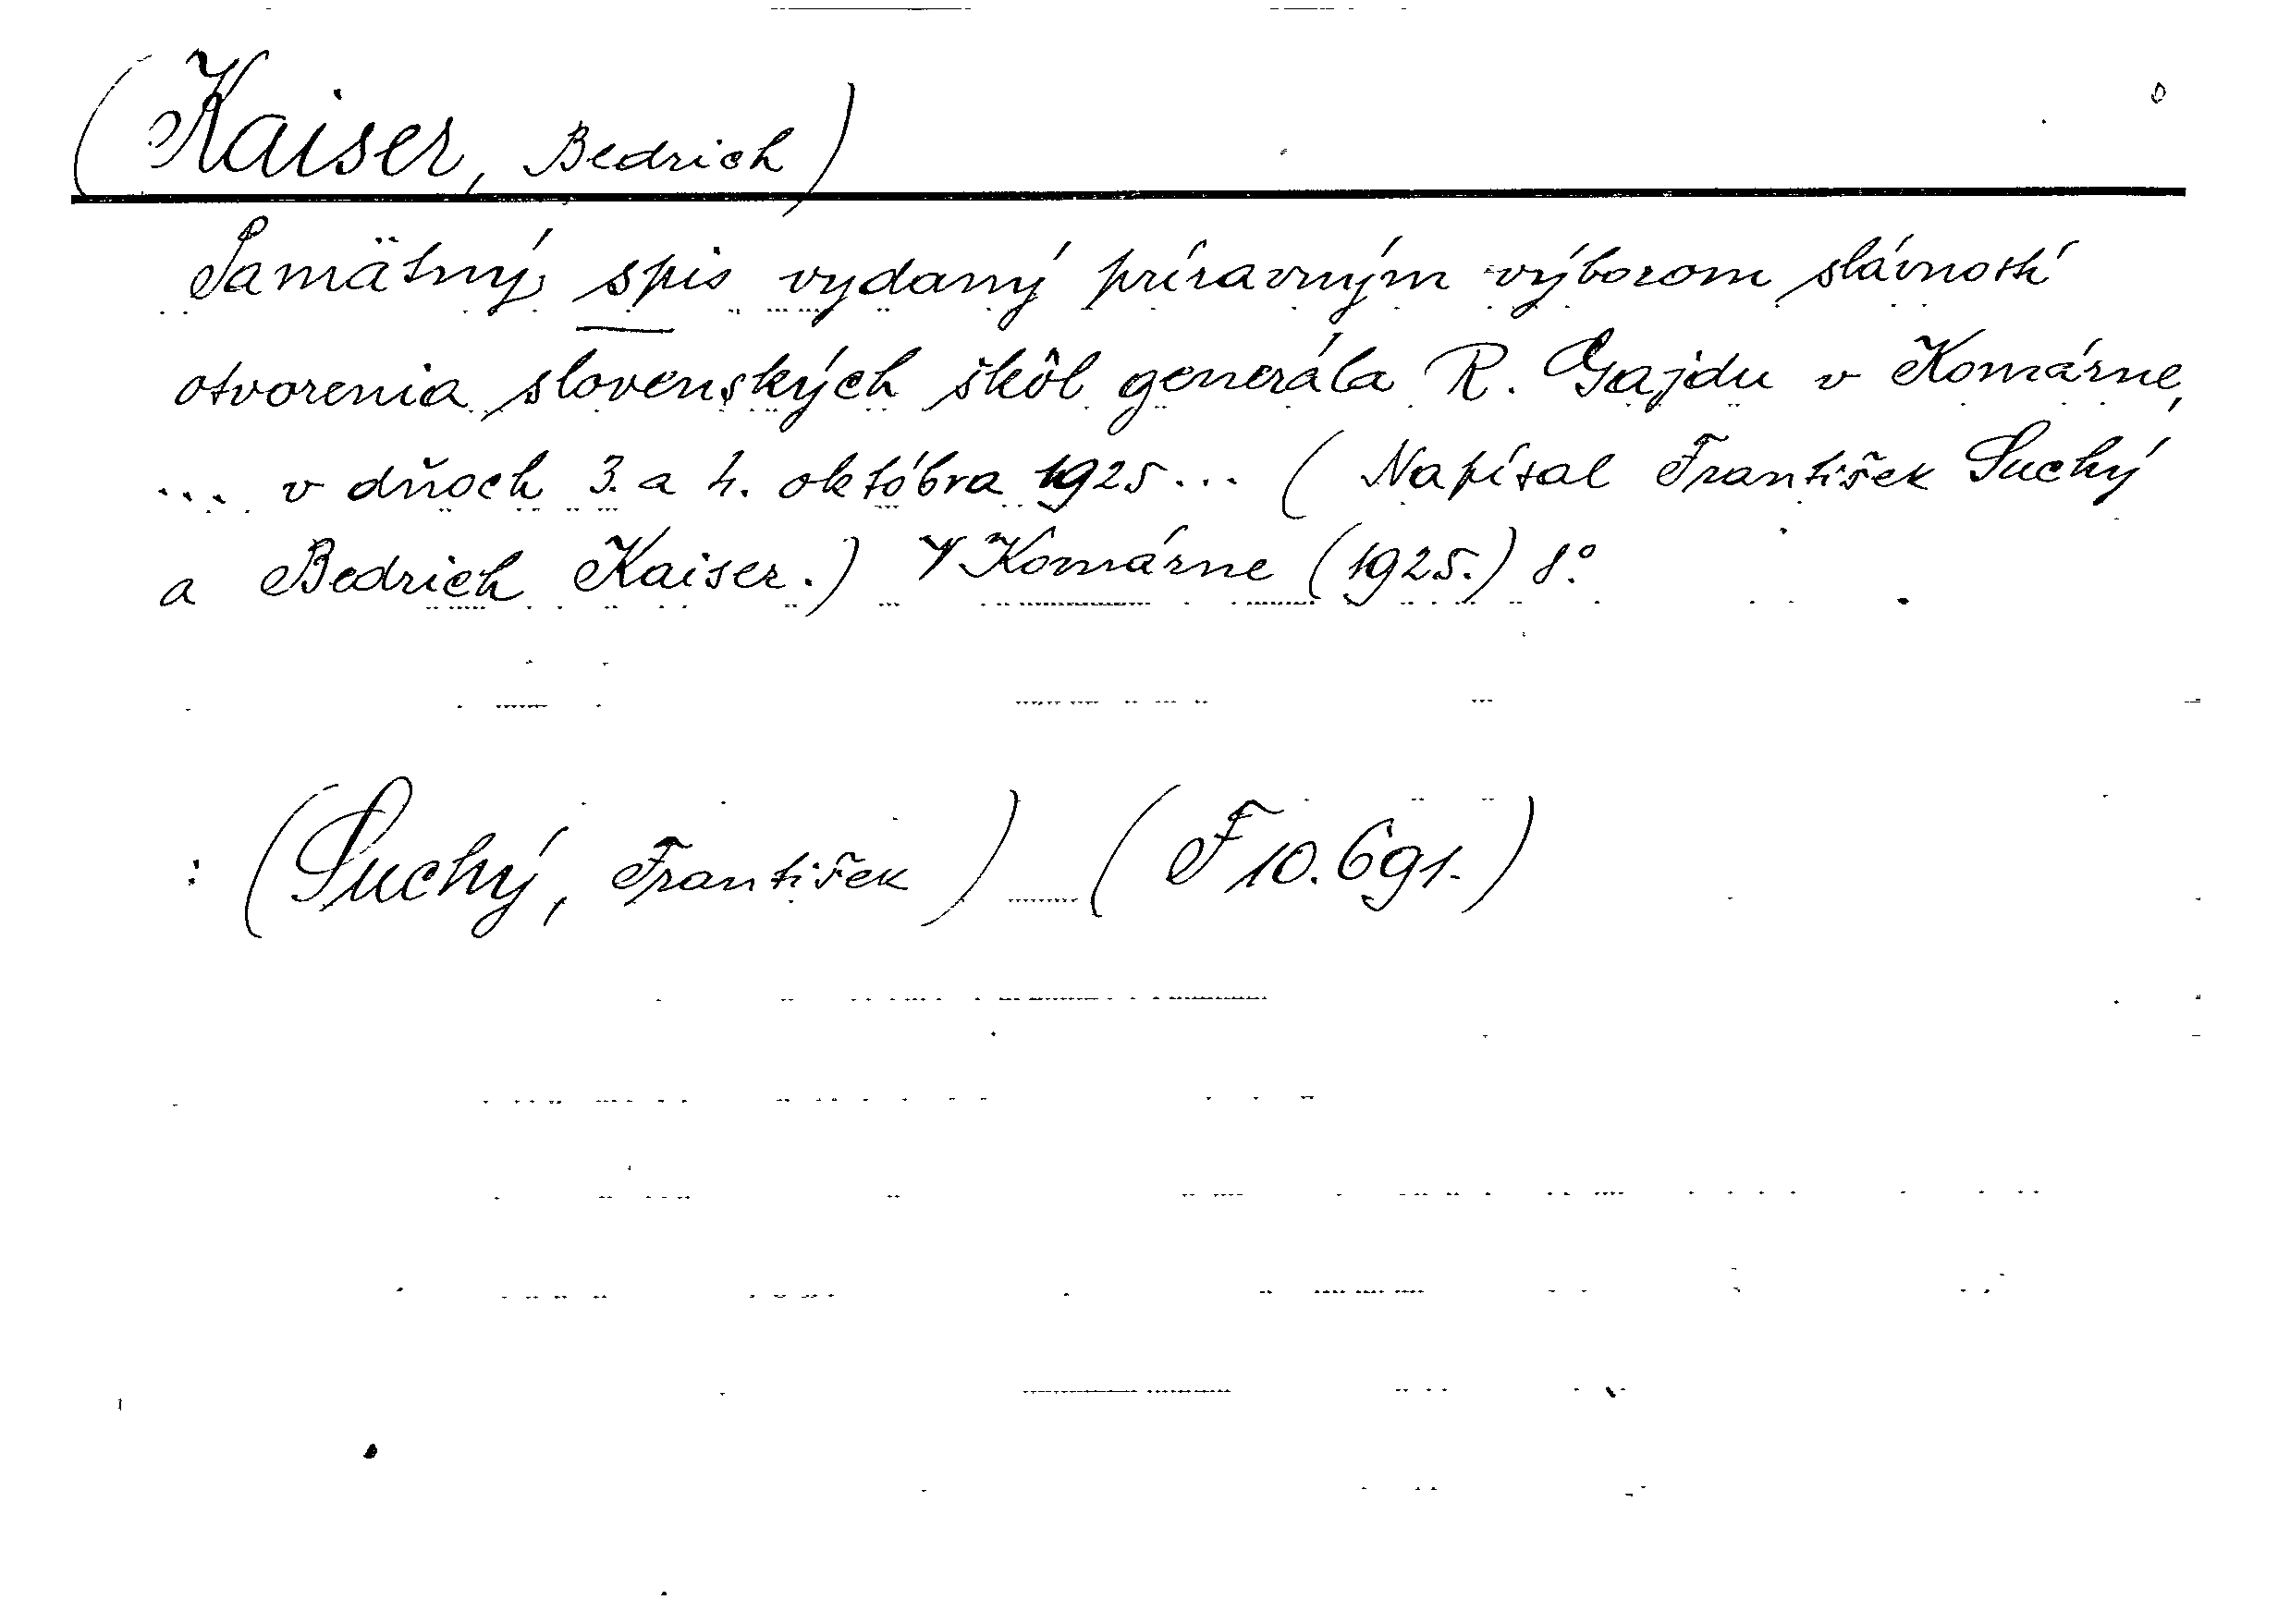 (Kaiser, Bedrich)
Pamätný spis vydaný prípravným výborom slávností
otvorenia slovenských škôl generála R. Gajdu v Komárne,
... v dňoch 3. a 4. októbra 1925... (Napísal František Suchý
a Bedrich Kaiser.) V Komárne (1925.) 8°.
: (Suchý, František) (F 10.691.)